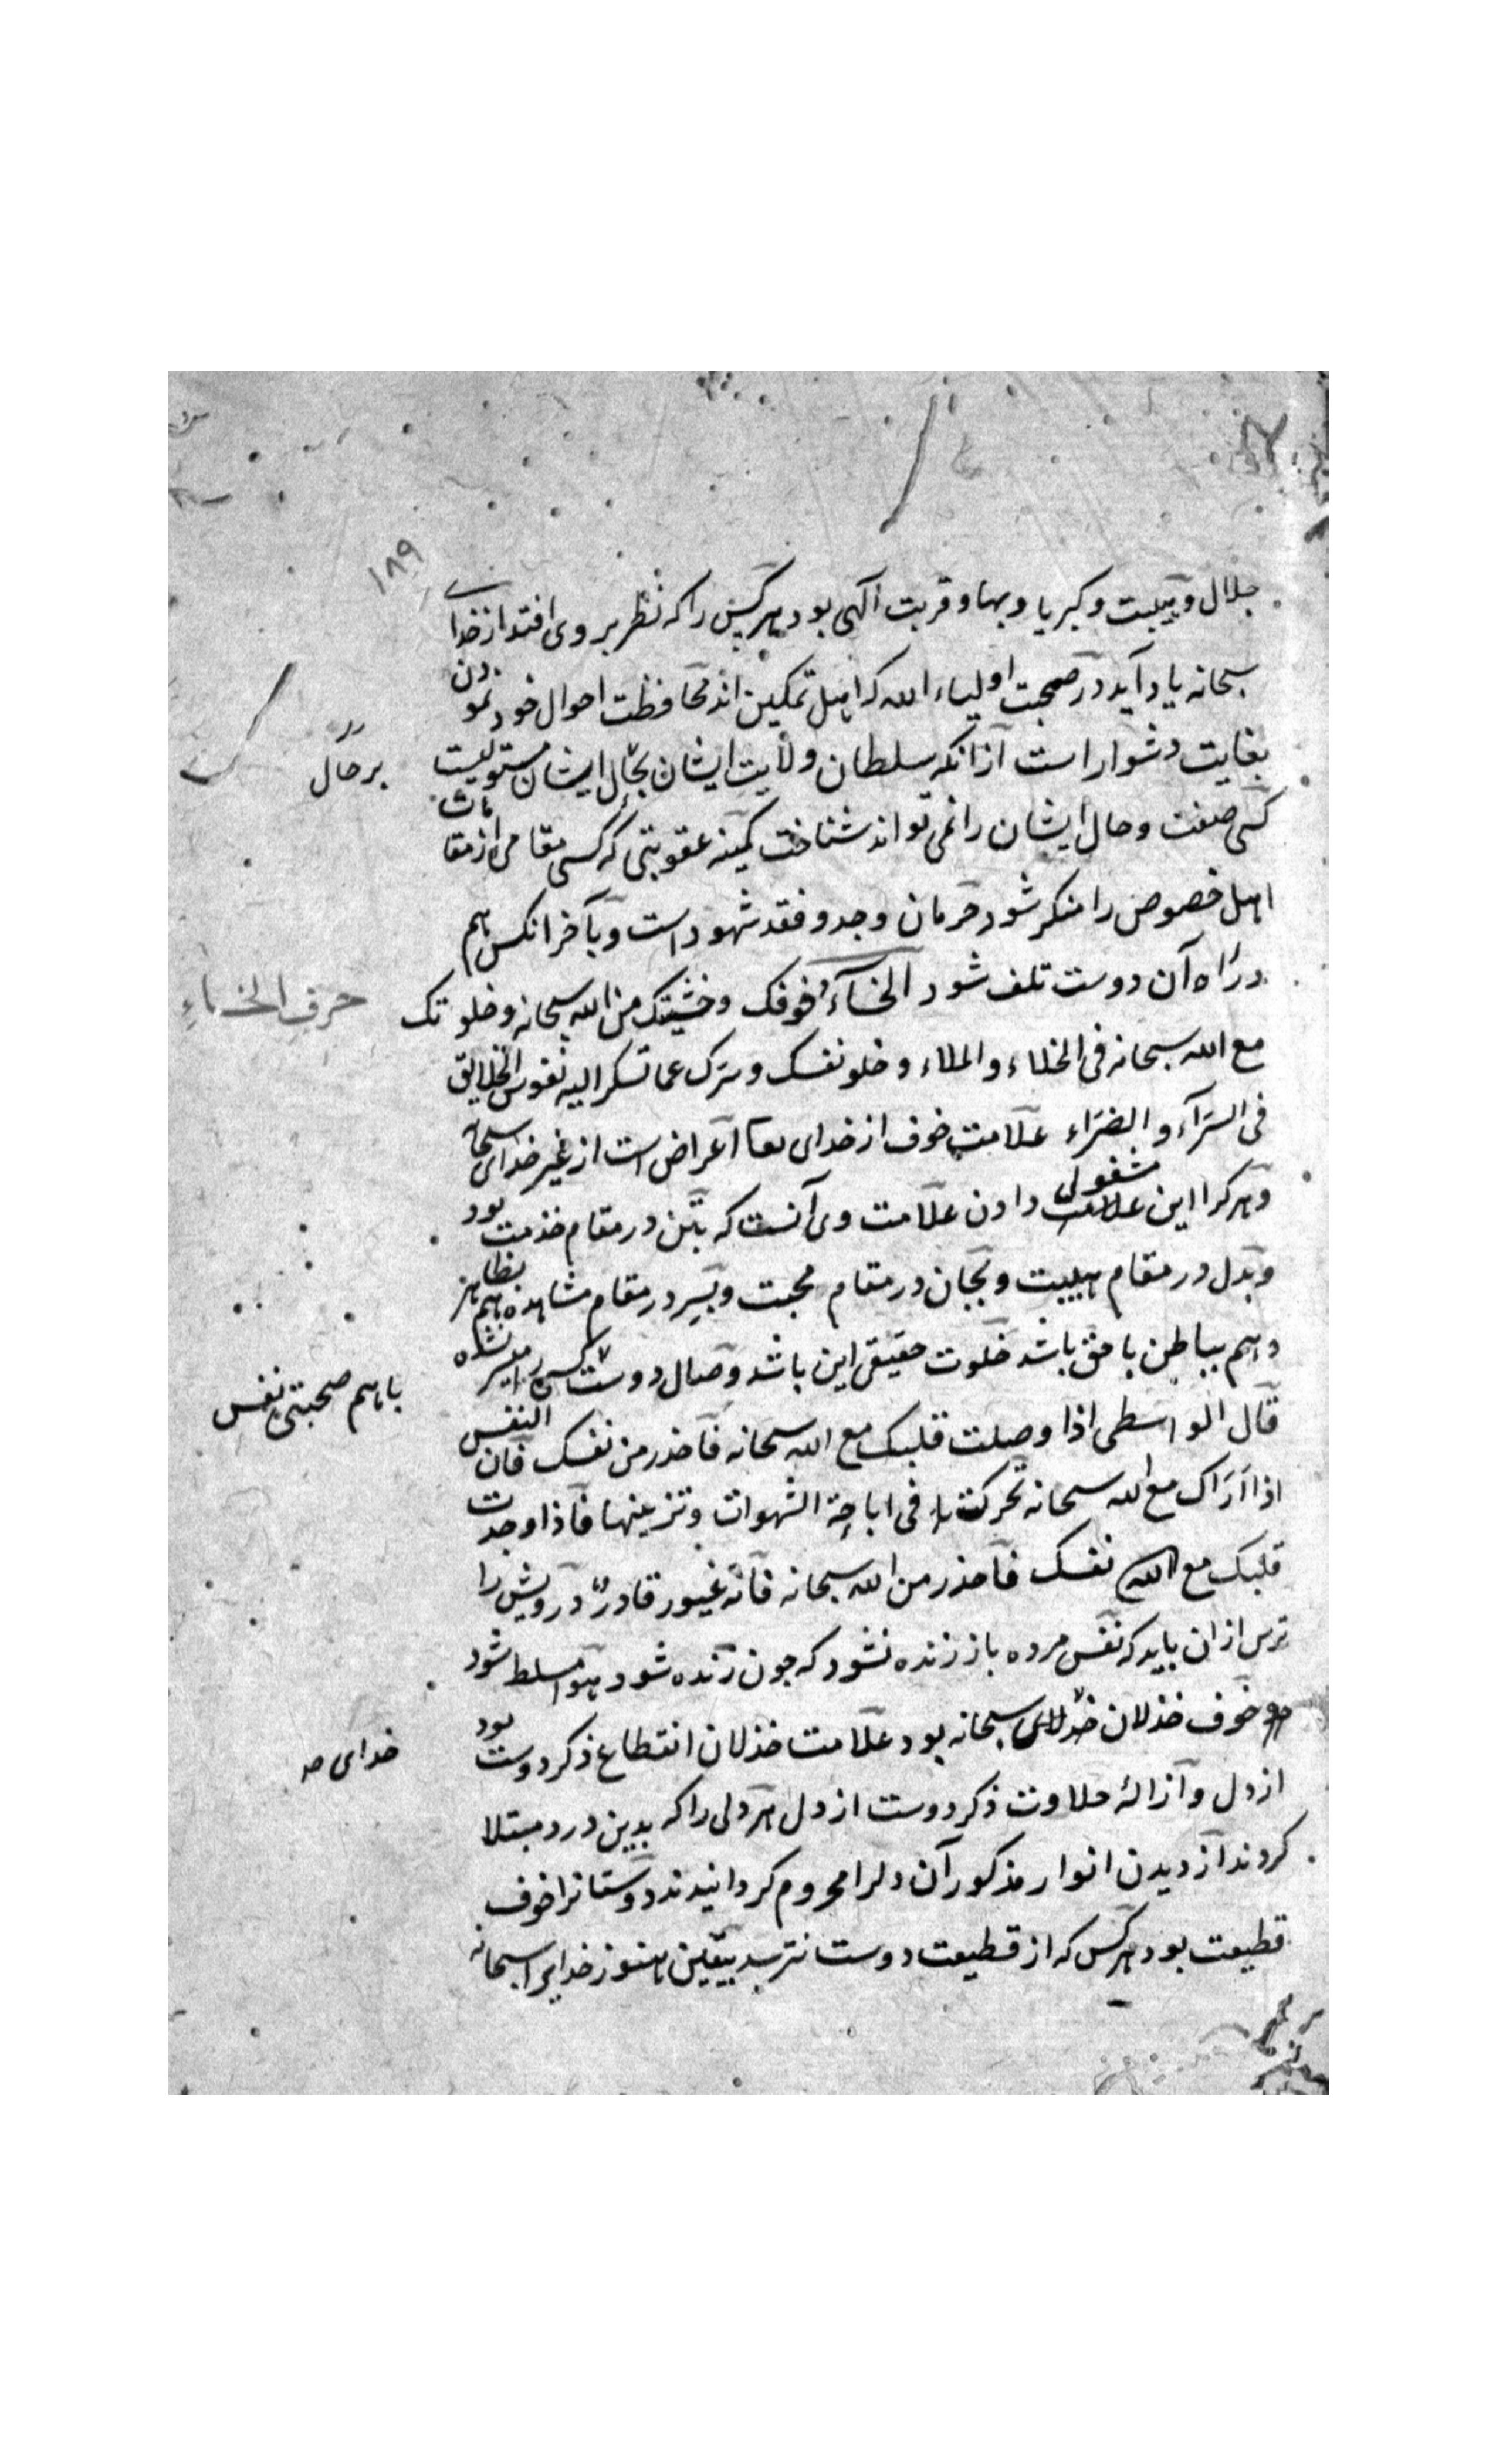 ۱۸۹
جلال و هیبت و کبریا و بها و قربت آلهی بود هر کس را که نظر بر وی افتد از خدای
سبحانه یاد آید در صحبت اولیاء الله که اهل تمکین اند محافظت احوال خود نمودن
بغایت دشوار است از انکه سلطان ولایت ایشان بحال ایشان مستولیست
بر حال
کسی صفت و حال ایشان را نمی تواند شناخت کمینه عقوبتی که کسی مقامی از مقامات
اهل خصوص را منکر شود حرمان وجد و فقد شهود است و بآخر انکس هم
در راه آن دوست تلف شود الخآء خوفک و خشیتک من الله سبحانه و خلوتک
حرف الخاءِ
مع الله سبحانه فی الخلاء و الملاء و خلو نفسک و سرک عما تسکر الیه نفوس الخلایق
فی السرآء و الضراء علامت خوف از خدای تعا اعراض است از غیر خدای سبحانه
و هر کرا این علامت مشغولی دادن علامت وی آنست که بتن در مقام خدمت بود
و بدل در مقام هیبت و بجان در مقام محبت و بسر در مقام مشاهده هم بظاهر
و هم بباطن با حق باشد خلوت حقیقی این باشد و صال دوست کس را میسر نشده
با هم صحبتی نفس
قال الواسطی اذا وصلت قلبک مع الله سبحانه فاحذر من نفسک فان النفس
اذا اراک مع الله سبحانه تحرکت فی اباحة الشهوات و تزیینها فاذا وجدت
قلبک مع الله نفسک فاحذر من الله سبحانه فانه غیور قادر درویش را
ترس از ان باید که نفس مرده باز زنده نشود که جون زنده شود هوا مسلط شود
خوف خذلان خدای سبحانه بود علامت خذلان انقطاع ذکر دوست بود
خدای صه
از دل و ازالۀ حلاوت ذکر دوست از دل هر دلی را که بدین درد مبتلا
کردند از دیدن انوار مذکور آن دلرا محروم کردانیدند دوستانرا خوف
قطیعت بود هر کس که از قطیعت دوست نترسد بیقین هنوز خدایرا سبحانه